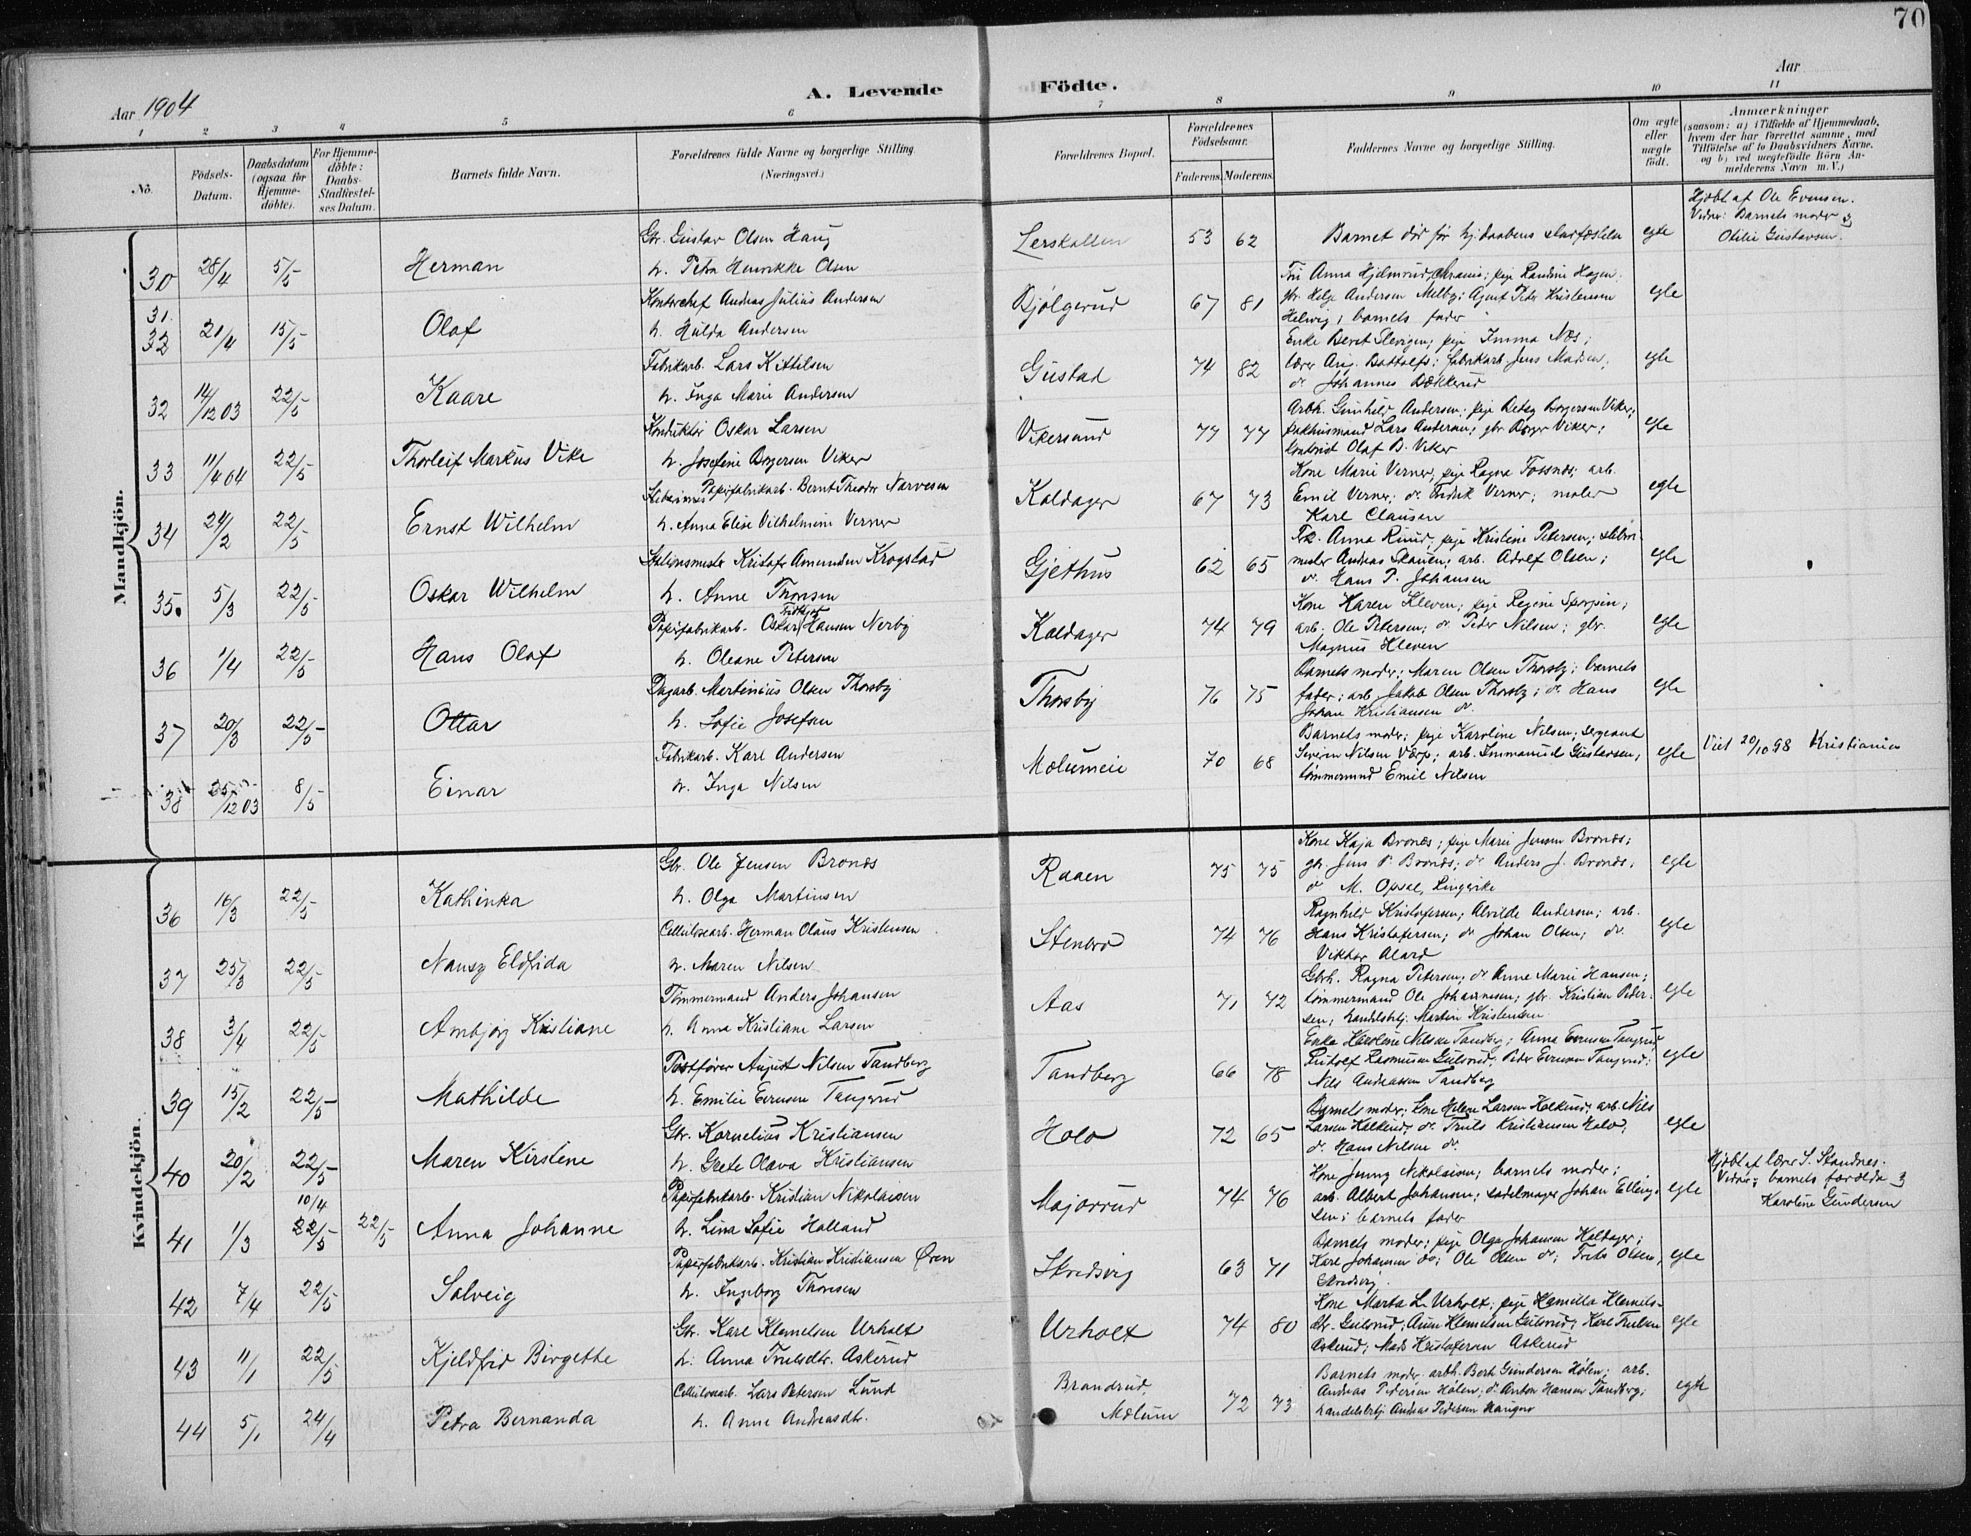 70
Aar 1904
A. Levende Födte.
Aar
1 2 3 4 5 6 7 8 9 10 11
No.
Födsels-Datum.
Daabsdatum (ogsaa for Hjemme-döbte).
For Hjemme-döbte: Daabs-Stadfæstel-ses Datum.
Barnets fulde Navn.
Forældrenes fulde Navne og borgerlige Stilling.
(Næringsvei.)
Forældrenes Bopæl.
Forældrenes Födselsaar.
Faderens. Moderens.
Faddernes Navne og borgerlige Stilling.
Om ægte eller uægte födt.
Anmærkninger
(saasom: a) i Tilfælde af Hjemmedaab, hvem der har forrettet samme, med Tilföielse af to Daabsvidners Navne, og b) ved uægtefödte Börn Anmelderens Navn m. V.)
Mandkjön.
30 28/4 5/5 Herman
Gbr. Gustav Olsen Haug
h. Petra Henrikke Olsen
Lerskallen 53 62
Barnet død før hj.daabens stadfæstelse
egte
Hjdøbt af Ole Evensen.
Vidner: Barnets moder og
Otilie Gustavsen.
31. 32 21/4 15/5 Olaf
Kontorchef Andreas Julius Andersen
h. Hulda Andersen
Bjølgerud 67 81
gbr. Helge Andersen Melby; Agent Peder Kristensen
Helwig; barnets fader
egte
32 14/12 03 22/5 Kaare
Fabrikarb. Lars Kittilsen
h. Inga Marie Andersen
Gustad 74 82
fabrikarb. Jens Madsen;
do Johannes Bækkerud
egte
33 11/4 04 22/5 Thorleif Markus Vike
Konduktør Oskar Larsen
h. Josefine Borgersen Viker
Vikersund 77 77
Arbk. Gunhild Andersen; pige Betsy Borgersen Viker;
Lars Andersen; gbr Borger Viker;
Olaf B. Viker
egte
34 24/2 22/5 Ernst Wilhelm
Papirfabrikarb. Bernt Theodor Narvesen
h. Anna Elise Vilhelmine Verner
Kaldager 67 73
Kone Marie Verner, pige Ragna Fossnes; arb.
Emil Verner; do Fredrik Verner; maler
Karl Clausen
egte
35. 5/3 22/5 Oskar Wilhelm
Stationsmester Kristofer Amundsen Krogstad
h. Anne Thorsen
Gjethus 62 65
Frk. Anna Ruud; pige Kristine Petersen; slibe-
mester Andreas Skauen; arb. Adolf Olsen;
do Hans P. Johansen
egte
36 1/4 22/5 Hans Olaf
Papirfabrikarb. Oskar Fridtjof Hansen Nerby
h. Oleane Petersen
Kaldager 74 79
Kone Karen Kleven; pige Regine
arb. Ole Petersen; do Peder Nilsen; gbr.
Magnus Kleven
egte
37 20/3 22/5 Ottar
Dagarb. Martinius Olsen Thorsby
h. Sofie Josefsen
Thorsby 76 75
Barnets moder; Maren Olsen Thorsby; barnets
fader; arb Jakob Olsen Thorsby; do Hans
Johan Kristiansen do
egte
38 25/12 03 8/5 Einar
Fabrikarb. Karl Andersen
h. Inga Nilsen
Mælumeie 70 68
Barnets moder; pige Karoline Nilsen; sergeant
Severin Nilsen; arb. Immanuel Gustavsen;
tømmermand Emil Nilsen
egte
Viet 20/10 98 Kristiania
Kvindekjön.
36 16/3 22/5 Kathinka
Gbr. Ole Jensen Bronæs
h. Olga Martinsen
Raaen 75 75
Kone Kaja Bronæs; pige Marie Jensen Bronæs;
gbr. Jens P. Bronæs; do Anders J. Bronæs;
do M. Opsal, Lingerike
egte
37 25/3 22/5 Nansy Eldfrida
Cellulosearb. Herman Olaus Kristensen
h. Maren Nilsen
Stenbro 74 76
Ragnhild Kristofersen; Alvilde Andersen; arb.
Hans Kristofersen; do Johan Olsen; do
Viktor Alard
egte
38 3/4 22/5 Ambjørg Kristiane
Tømmermand Anders Johansen
h. Anna Kristiane Larsen
Aas 71 72
Gbrk. Ragna Petersen; do Anne Marie Hansen;
tømmermand Ole Johannesen; gbr. Kristian Peder-
sen; handelsbtj. Martin Kristensen
egte
39 15/2 22/5 Mathilde
Postfører August Nilsen Tandberg
h. Emilie Evensen Tangerud
Tandberg 66 78
Enke Karoline Nilsen Tandberg; Anne Evensen Tangerud
Rudolf Rasmussen Gulsrud; Peder Evensen Tangerud;
Nils Andreassen Tandberg
egte
40 20/2 22/5 Maren Kirstene
Gbr. Kornelius Kristiansen
h. Grete Olava Kristiansen
Holo 72 65
Barnets moder; kone Helene Larsen Kolkind; arb. Nils
Larsen Kolkind; do Truls Kristiansen Holo;
do Hans Nilsen do
egte
41 1/3 10/4 22/5 22/5 Anna Johanne
Papirfabrikarb. Kristian Nikolaisen
h. Lina Sofie Holland
Majorrud 74 76
Kone Jenny Nikolaisen; barnets moder;
arb. Albert Johansen; sadelmager Johan Elling-
sen; barnets fader
egte
Hjdøbt af lærer S. Standnes.
Vidner; barnets forældre og
Karoline Gundersen
42 7/4 22/5 Solveig
Papirfabrikarb. Kristian Kristiansen Øren
h. Ingeborg Thoresen
Skredsvig 63 71
Barnets moder; pige Olga Johansen Kaldager;
Karl Johansen do; Ole Olsen do; Frits Olsen,
Skredsvig.
egte
43 11/1 22/5 Kjeldfrid Birgette
Gbr. Karl Klemetsen Urholt
h. Anna Trulsdtr. Askerud
Urholt 74 80
Kone Marta L. Urholt; pige Hamilla Klemets-
dtr. Gulsrud; Arne Klemetsen Gulsrud; Karl Trulsen
Askerud; Mads Kristofersen Askerud
egte
44 5/1 24/4 Petra Bernanda
Cellulosearb. Lars Petersen Lund
h. Anne Andreasdtr.
Brandrud,
Mælum 72 73
Barnets moder, arbk. Berte Gundersen Hølen; arb.
Andreas Pedersen Hølen; do Anton Hansen Tandberg;
handelsbtj Andreas Pedersen
egte